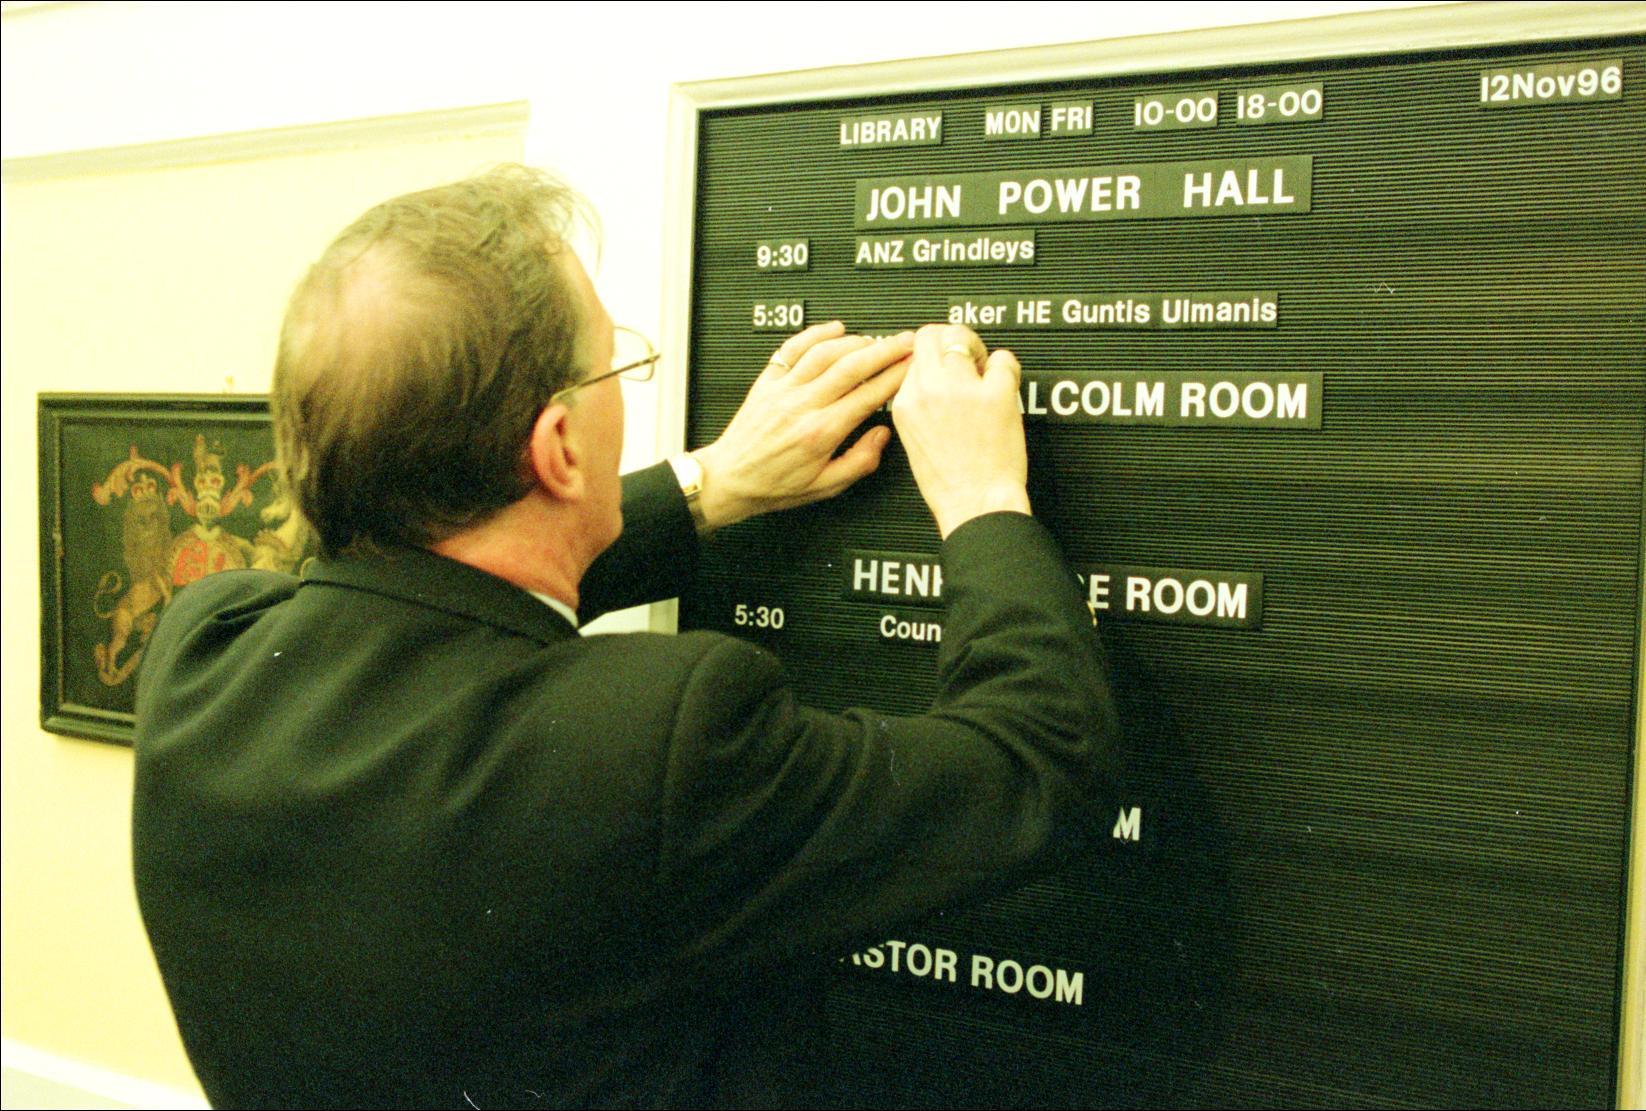 12Nov96
LIBRARY MON FRI 10-00 18-00
JOHN POWER HALL
9:30 ANZ Grindleys
5:30 aker HE Guntis Ulmanis
ALCOLM ROOM
HEN E ROOM
5:30 Coun
M
ASTOR ROOM